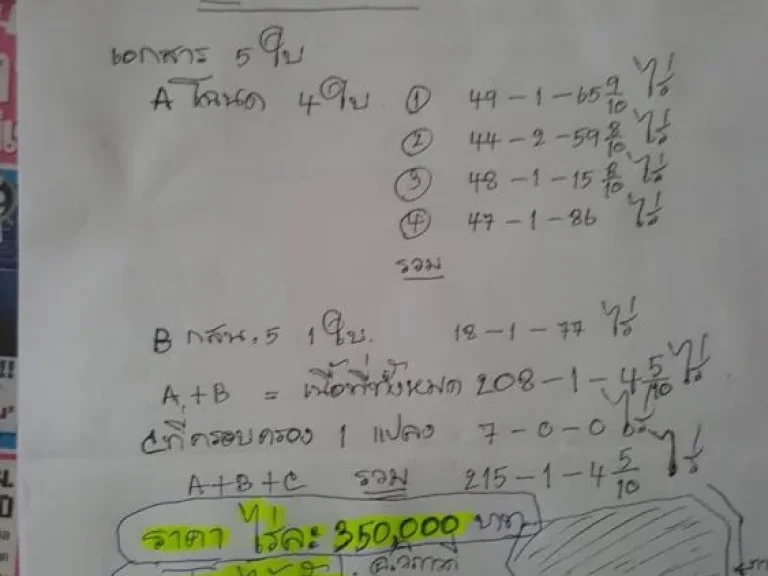 เอกสาร 5 ใบ
A โฉนด 4 ใบ ① 49 - 1 - 65 9/10 ไร่
② 44 - 2 - 59 8/10 ไร่
③ 48 - 1 - 15 8/10 ไร่
④ 47 - 1 - 86 ไร่
รวม
B กสน.5 1 ใบ. 18 - 1 - 77 ไร่
A + B = เนื้อที่ทั้งหมด 208 - 1 - 4 5/10 ไร่
C ที่ครอบครอง 1 แปลง 7 - 0 - 0 ไร่
A + B + C รวม 215 - 1 - 4 5/10 ไร่
ราคา ไร่ละ 350,000 บาท